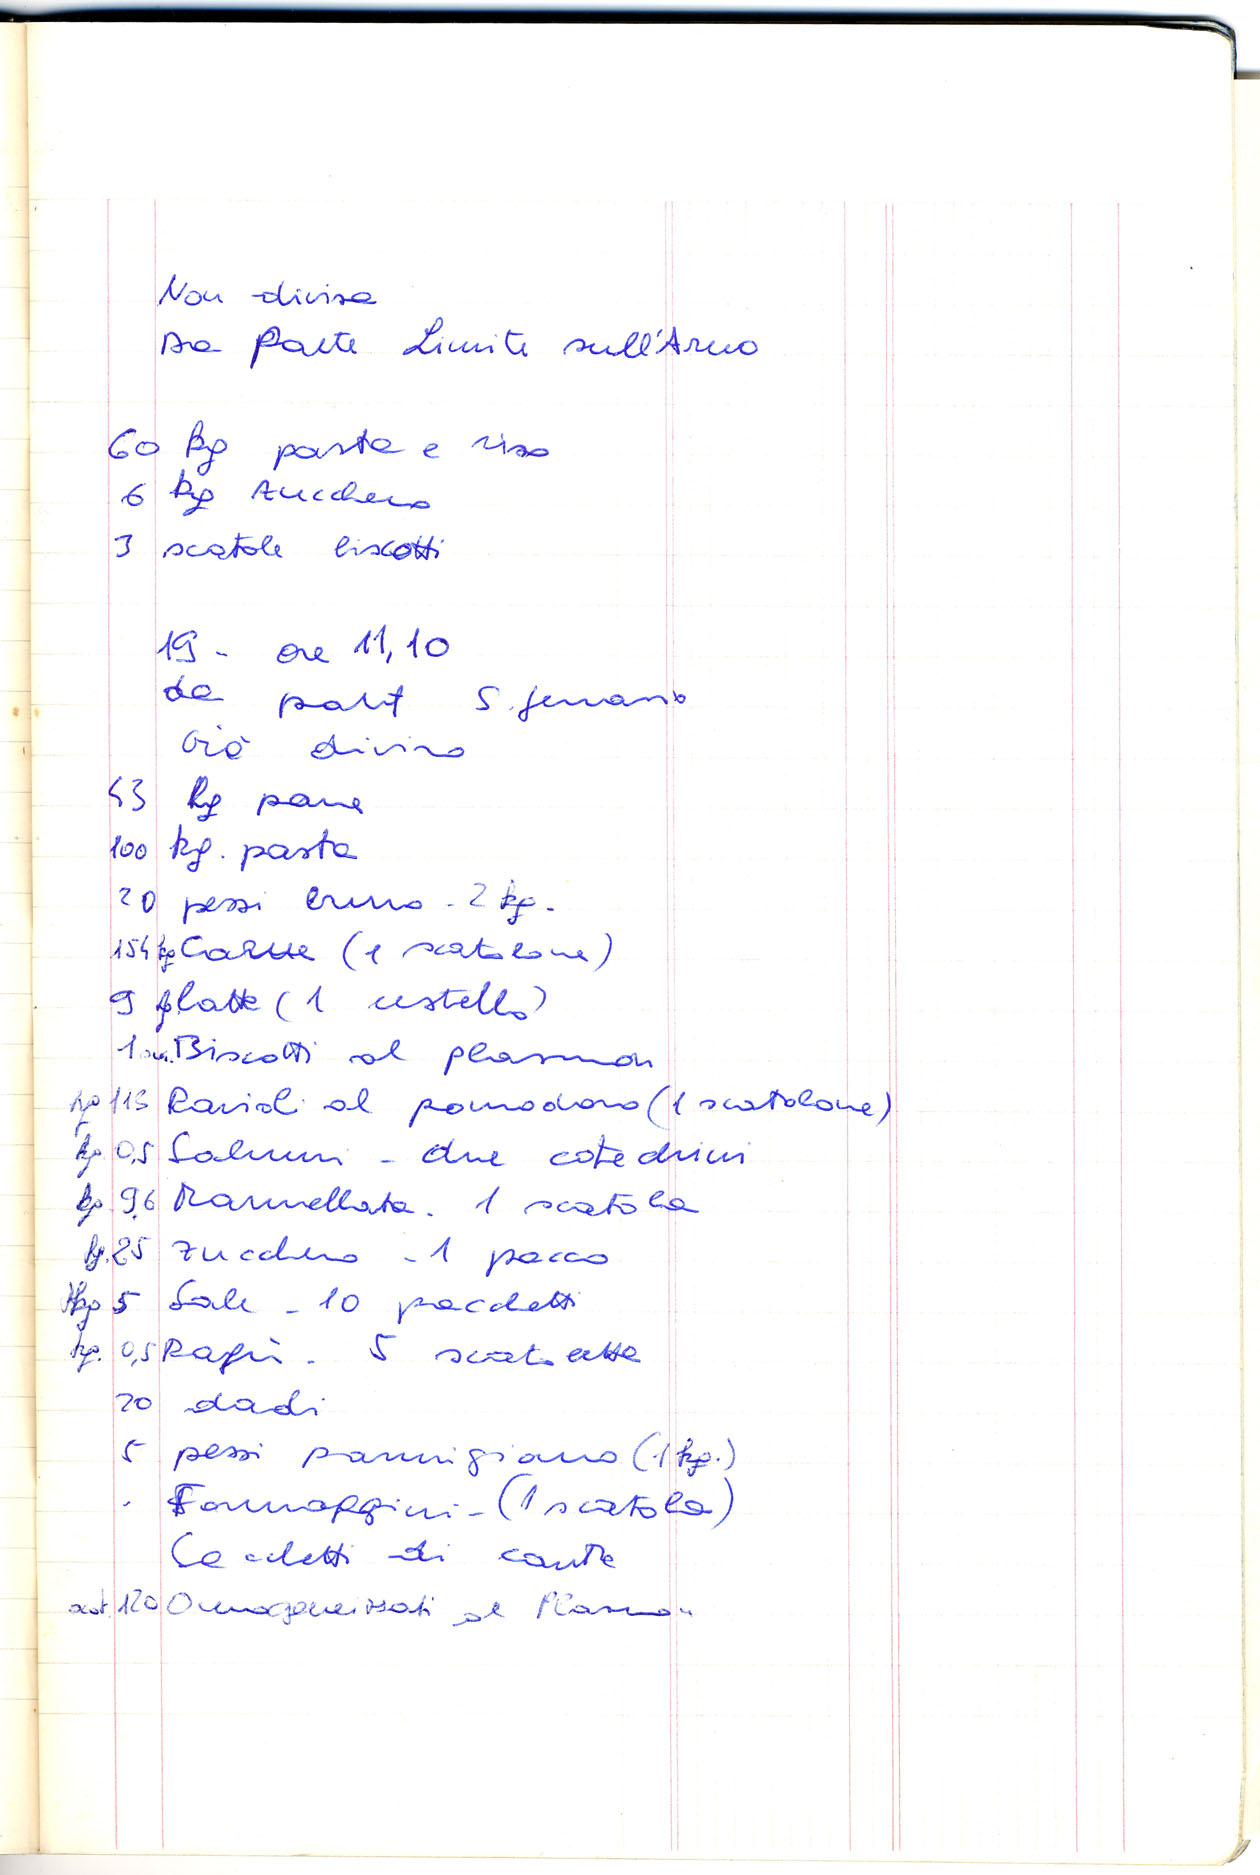 Non divisa
Da Parte Limite sull'Arno
60 kg pasta e riso
6 kg zucchero
3 scatole biscotti
19 - ore 11,10
da part S. Gennaro
Già diviso
43 kg pane
100 kg. pasta
20 pezzi burro - 2 kg.
154 kg Carne (1 scatolone)
9 kg latte (1 cestello)
1 Biscotti al plasmon
kg 113 Ravioli al pomodoro (1 scatolone)
kg. 0,5 Salumi - due cotechini
kg. 9,6 Marmellata. 1 scatola
kg. 25 Zucchero - 1 pacco
kg 5 Sale - 10 pacchetti
kg. 0,5 Ragù - 5 scatolette
20 dadi
5 pezzi parmigiano (1 kg.)
Formaggini - (1 scatola)
Sacchetti di carta
scat. 120 Omogeneizzati al Plasmon